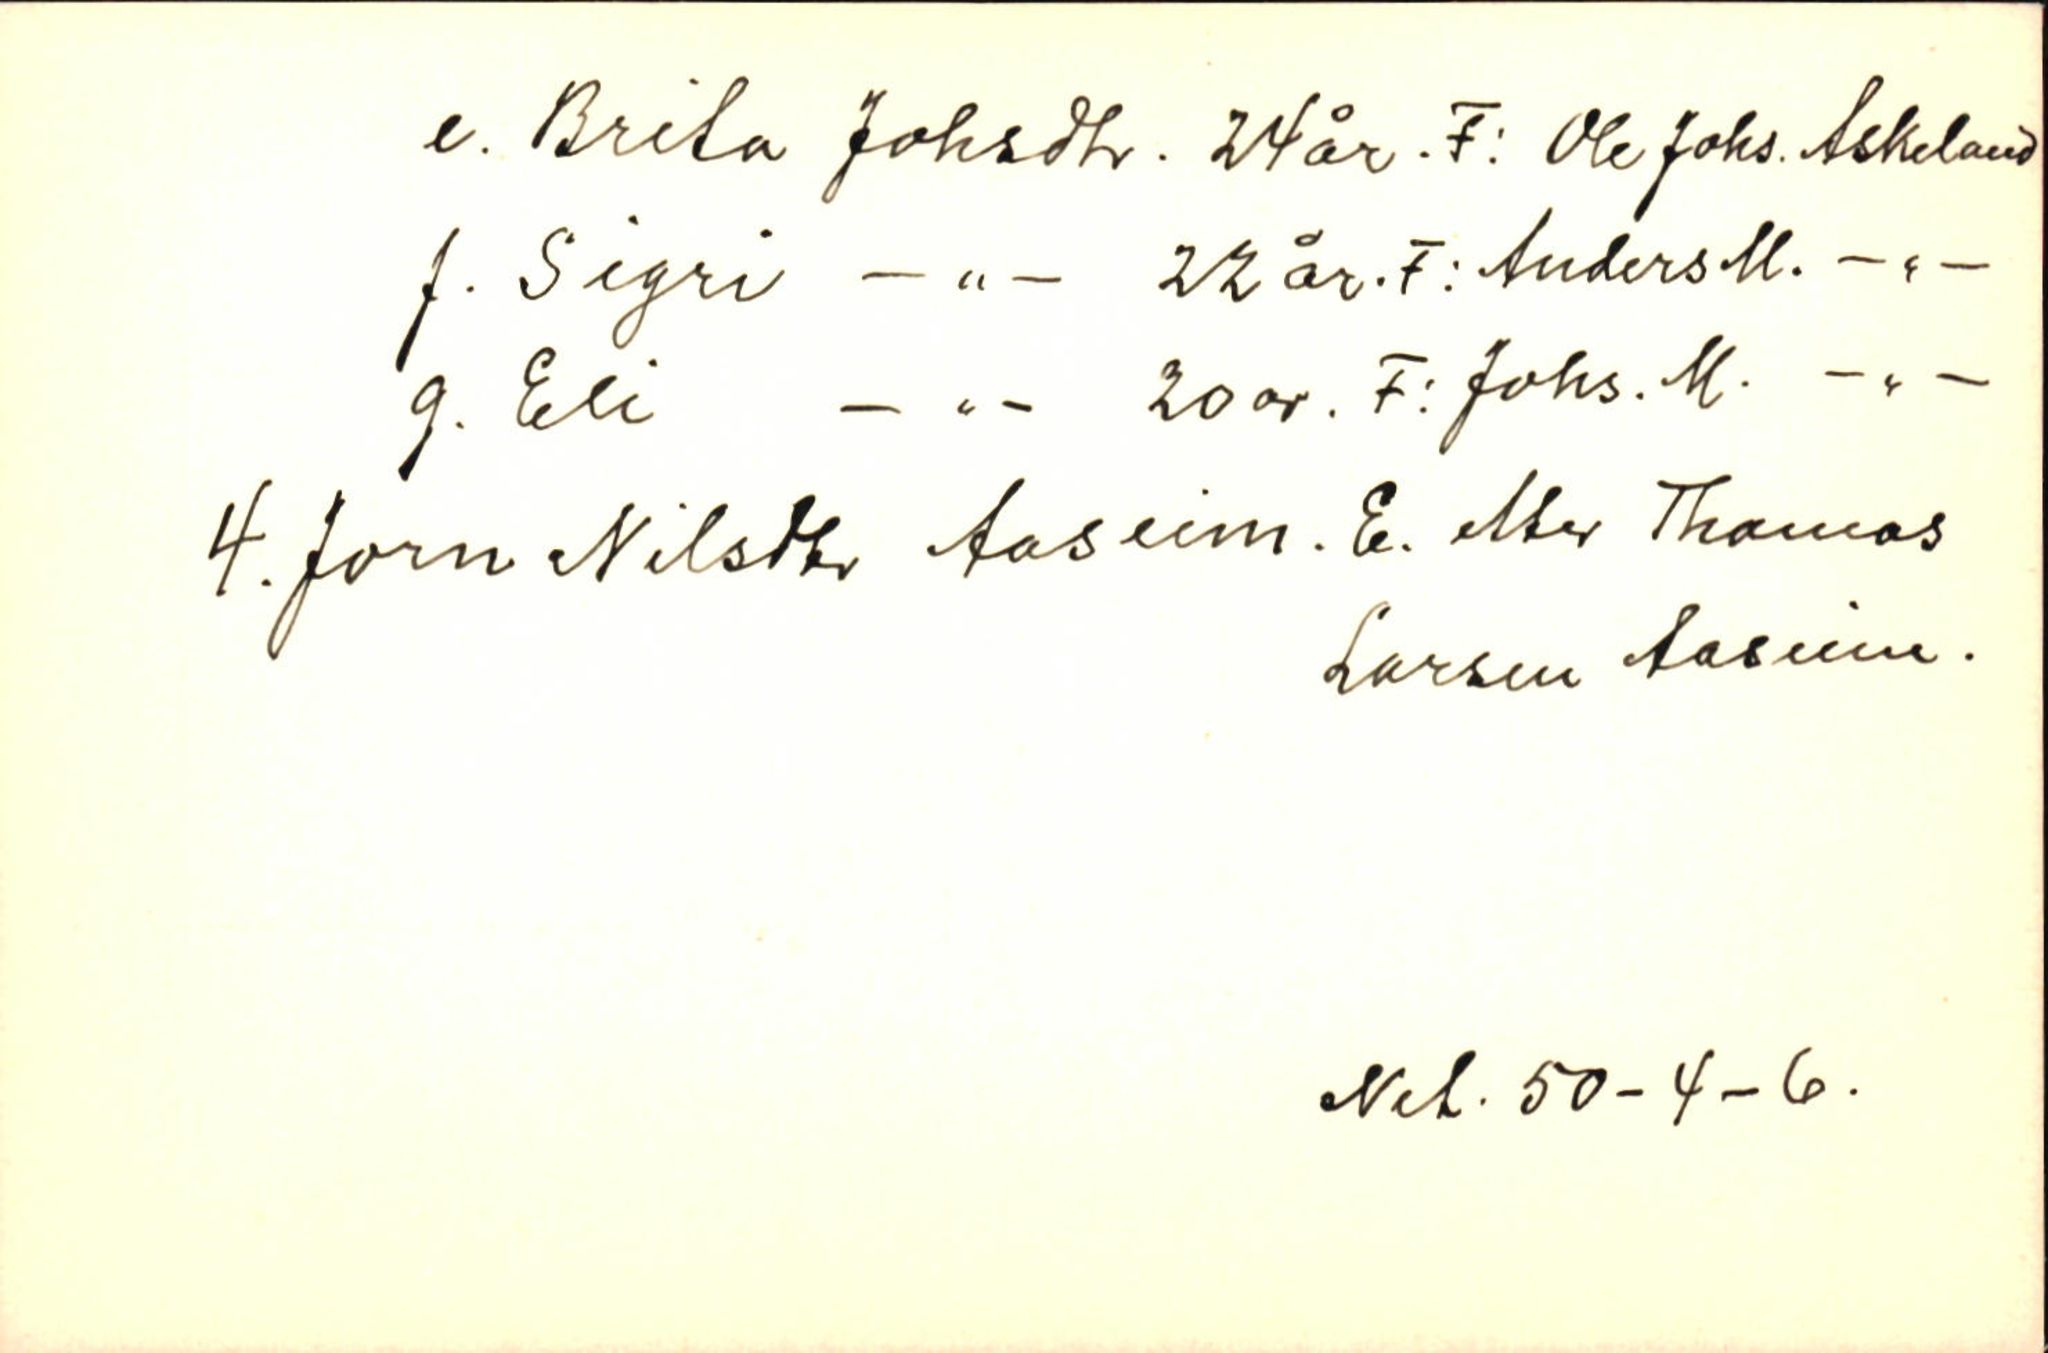 e. Brita Johsdtr. 24 år. F: Ole Johs. Askeland
f. Sigri — " — 22 år. F: Anders M. — " —
g. Eli — " — 20 år. F: Johs. M. — " —
4. Jorn Nilsdtr Aaseim. E. etter Thomas
Larsen Aaseim.
Net. 50-4-6.